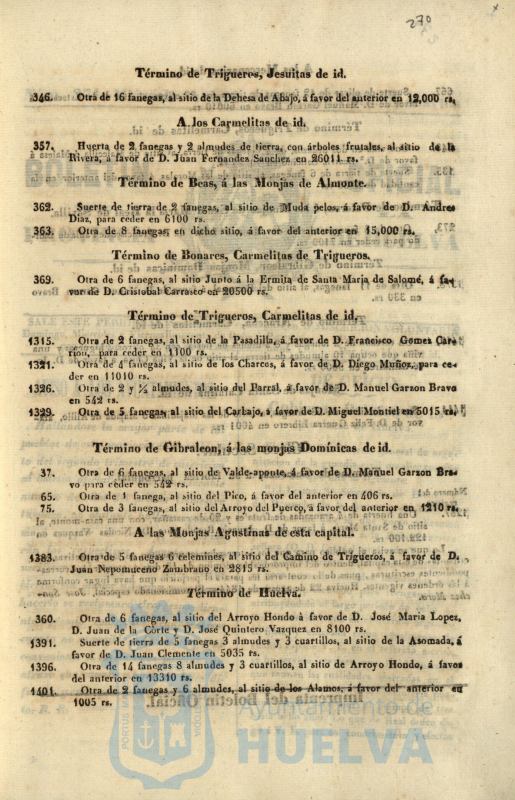 270
Término de Trigueros, Jesuitas de id.
346. Otra de 16 fanegas, al sitio de la Dehesa de Abajo, á favor del anterior en 12,000 rs.
A los Carmelitas de id.
357. Huerta de 2 fanegas y 2 almudes de tierra, con árboles frutales, al sitio de la
Rivera, á favor de D. Juan Fernandez Sanchez en 26011 rs.
Término de Beas, á las Monjas de Almonte.
362. Suerte de tierra de 2 fanegas, al sitio de Muda pelos, á favor de D. Andres
Diaz, para ceder en 6100 rs.
363. Otra de 8 fanegas, en dicho sitio, á favor del anterior en 15,000 rs.
Término de Bonares, Carmelitas de Trigueros.
369. Otra de 6 fanegas, al sitio Junto á la Ermita de Santa Maria de Salomé, á fa-
vor de D. Cristobal Carrasco en 20500 rs.
Término de Trigueros, Carmelitas de id.
1315. Otra de 2 fanegas, al sitio de la Pasadilla, á favor de D. Francisco Gomez Car-
rion, para ceder en 1100 rs.
1321. Otra de 4 fanegas, al sitio de los Charcos, á favor de D. Diego Muñoz, para ce-
der en 11010 rs.
1326. Otra de 2 y ½ almudes, al sitio del Parral, á favor de D. Manuel Garzon Bravo
en 542 rs.
1329. Otra de 5 fanegas, al sitio del Carbajo, á favor de D. Miguel Montiel en 5015 rs.
Término de Gibraleon, á las monjas Domínicas de id.
37. Otra de 6 fanegas, al sitio de Valde-aponte, á favor de D. Manuel Garzon Bra-
vo para ceder en 542 rs.
65. Otra de 1 fanega, al sitio del Pico, á favor del anterior en 406 rs.
75. Otra de 3 fanegas, al sitio del Arroyo del Puerco, á favor del anterior en 1210 rs.
A las Monjas Agustinas de esta capital.
1383. Otra de 5 fanegas 6 celemines, al sitio del Camino de Trigueros, á favor de D.
Juan Nepomuceno Zambrano en 2815 rs.
Término de Huelva.
360. Otra de 6 fanegas, al sitio del Arroyo Hondo á favor de D. José Maria Lopez,
D. Juan de la Corte y D. José Quintero Vazquez en 8100 rs.
1391. Suerte de tierra de 5 fanegas 3 almudes y 3 cuartillos, al sitio de la Asomada, á
favor de D. Juan Clemente en 5035 rs.
1396. Otra de 14 fanegas 8 almudes y 3 cuartillos, al sitio de Arroyo Hondo, á favor
del anterior en 13310 rs.
1401. Otra de 2 fanegas y 6 almudes, al sitio de los Alamos, á favor del anterior en
1005 rs.
Ayuntamiento de
HUELVA